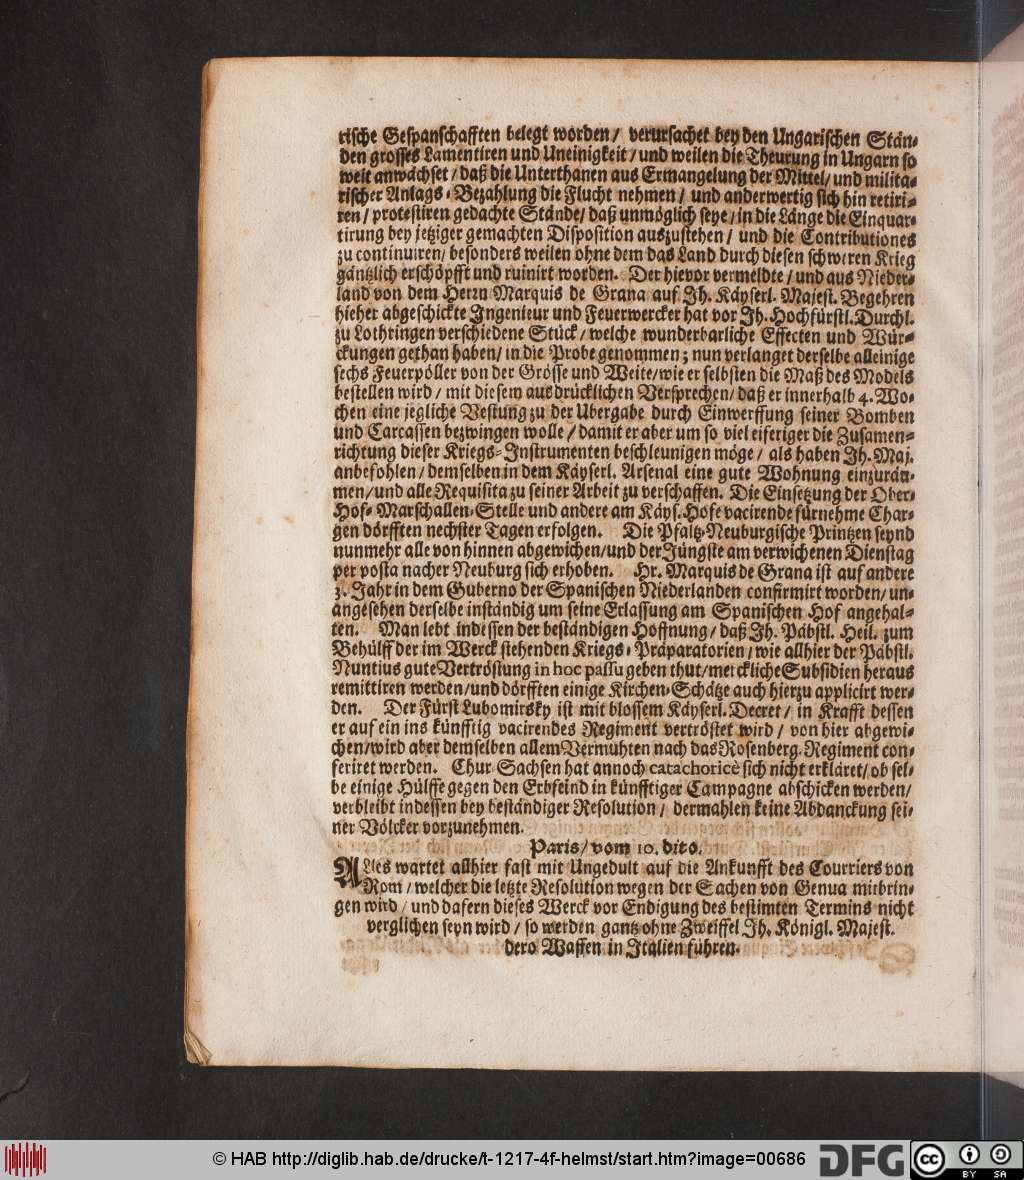 rische Gespanschafften belegt worden / verursachet bey den Ungarischen Stän-
den grosses Lamentiren und Uneinigkeit / und weilen die Theurung in Ungarn so
weit anwachset / daß die Unterthanen aus Ermangelung der Mittel / und milita-
rischer Anlags-Bezahlung die Flucht nehmen / und anderwertig sich hin retiri-
ren / protestiren gedachte Stände / daß unmöglich seye / in die Länge die Einquar-
tirung bey jetziger gemachten Disposition auszustehen / und die Contributiones
zu continuiren / besonders weilen ohne dem das Land durch diesen schweren Krieg
gäntzlich erschöpfft und ruinirt worden. Der hievor vermeldte / und aus Nieder-
land von dem Herrn Marquis de Grana auf Ih. Käyserl. Majest. Begehren
hieher abgeschickte Ingenieur und Feuerwercker hat vor Ih. Hochfürstl. Durchl.
zu Lothringen verschiedene Stück / welche wunderbarliche Effecten und Wür-
ckungen gethan haben / in die Probe genommen; nun verlanget derselbe alleinige
sechs Feuerpöller von der Grösse und Weite / wie er selbsten die Maß des Models
bestellen wird / mit diesem ausdrücklichen Versprechen / daß er innerhalb 4. Wo-
chen eine jegliche Vestung zu der Ubergabe durch Einwerffung seiner Bomben
und Carcassen bezwingen wolle / damit er aber um so viel eiferiger die Zusamen-
richtung dieser Kriegs-Instrumenten beschleunigen möge / als haben Ih. Maj.
anbefohlen / demselben in dem Käyserl. Arsenal eine gute Wohnung einzuräu-
men / und alle Requisita zu seiner Arbeit zu verschaffen. Die Einsetzung der Ober-
Hof-Marschallen-Stelle und andere am Käys. Hofe vacirende fürnehme Char-
gen dörfften nechster Tagen erfolgen. Die Pfaltz-Neuburgische Printzen seynd
nunmehr alle von hinnen abgewichen / und der Jüngste am verwichenen Dienstag
per posta nacher Neuburg sich erhoben. Hr. Marquis de Grana ist auf andere
3. Jahr in dem Guberno der Spanischen Niederlanden confirmirt worden / un-
angesehen derselbe inständig um seine Erlassung am Spanischen Hof angehal-
ten. Man lebt indessen der beständigen Hoffnung / daß Ih. Päbstl. Heil. zum
Behülff der im Werck stehenden Kriegs-Präparatorien / wie allhier der Päbstl.
Nuntius gute Vertröstung in hoc passu geben thut / merckliche Subsidien heraus
remittiren werden / und dörfften einige Kirchen-Schätze auch hierzu applicirt wer-
den. Der Fürst Lubomirsky ist mit blossem Käyserl. Decret / in Krafft dessen
er auf ein ins künfftig vacirendes Regiment vertröstet wird / von hier abgewi-
chen / wird aber demselben allem Vermuhten nach das Rosenberg. Regiment con-
feriret werden. Chur Sachsen hat annoch catachoricè sich nicht erkläret / ob sel-
be einige Hülffe gegen den Erbfeind in künfftiger Campagne abschicken werden /
verbleibt indessen bey beständiger Resolution / dermahlen keine Abdanckung sei-
ner Völcker vorzunehmen.
Paris / vom 10. dito.
Alles wartet allhier fast mit Ungedult auf die Ankunfft des Courriers von
Rom / welcher die letzte Resolution wegen der Sachen von Genua mitbrin-
gen wird / und dafern dieses Werck vor Endigung des bestimten Termins nicht
verglichen seyn wird / so werden gantz ohne Zweiffel Ih. Königl. Majest.
dero Waffen in Italien führen.
© HAB http://diglib.hab.de/drucke/t-1217-4f-helmst/start.htm?image=00686
DFG
cc BY SA